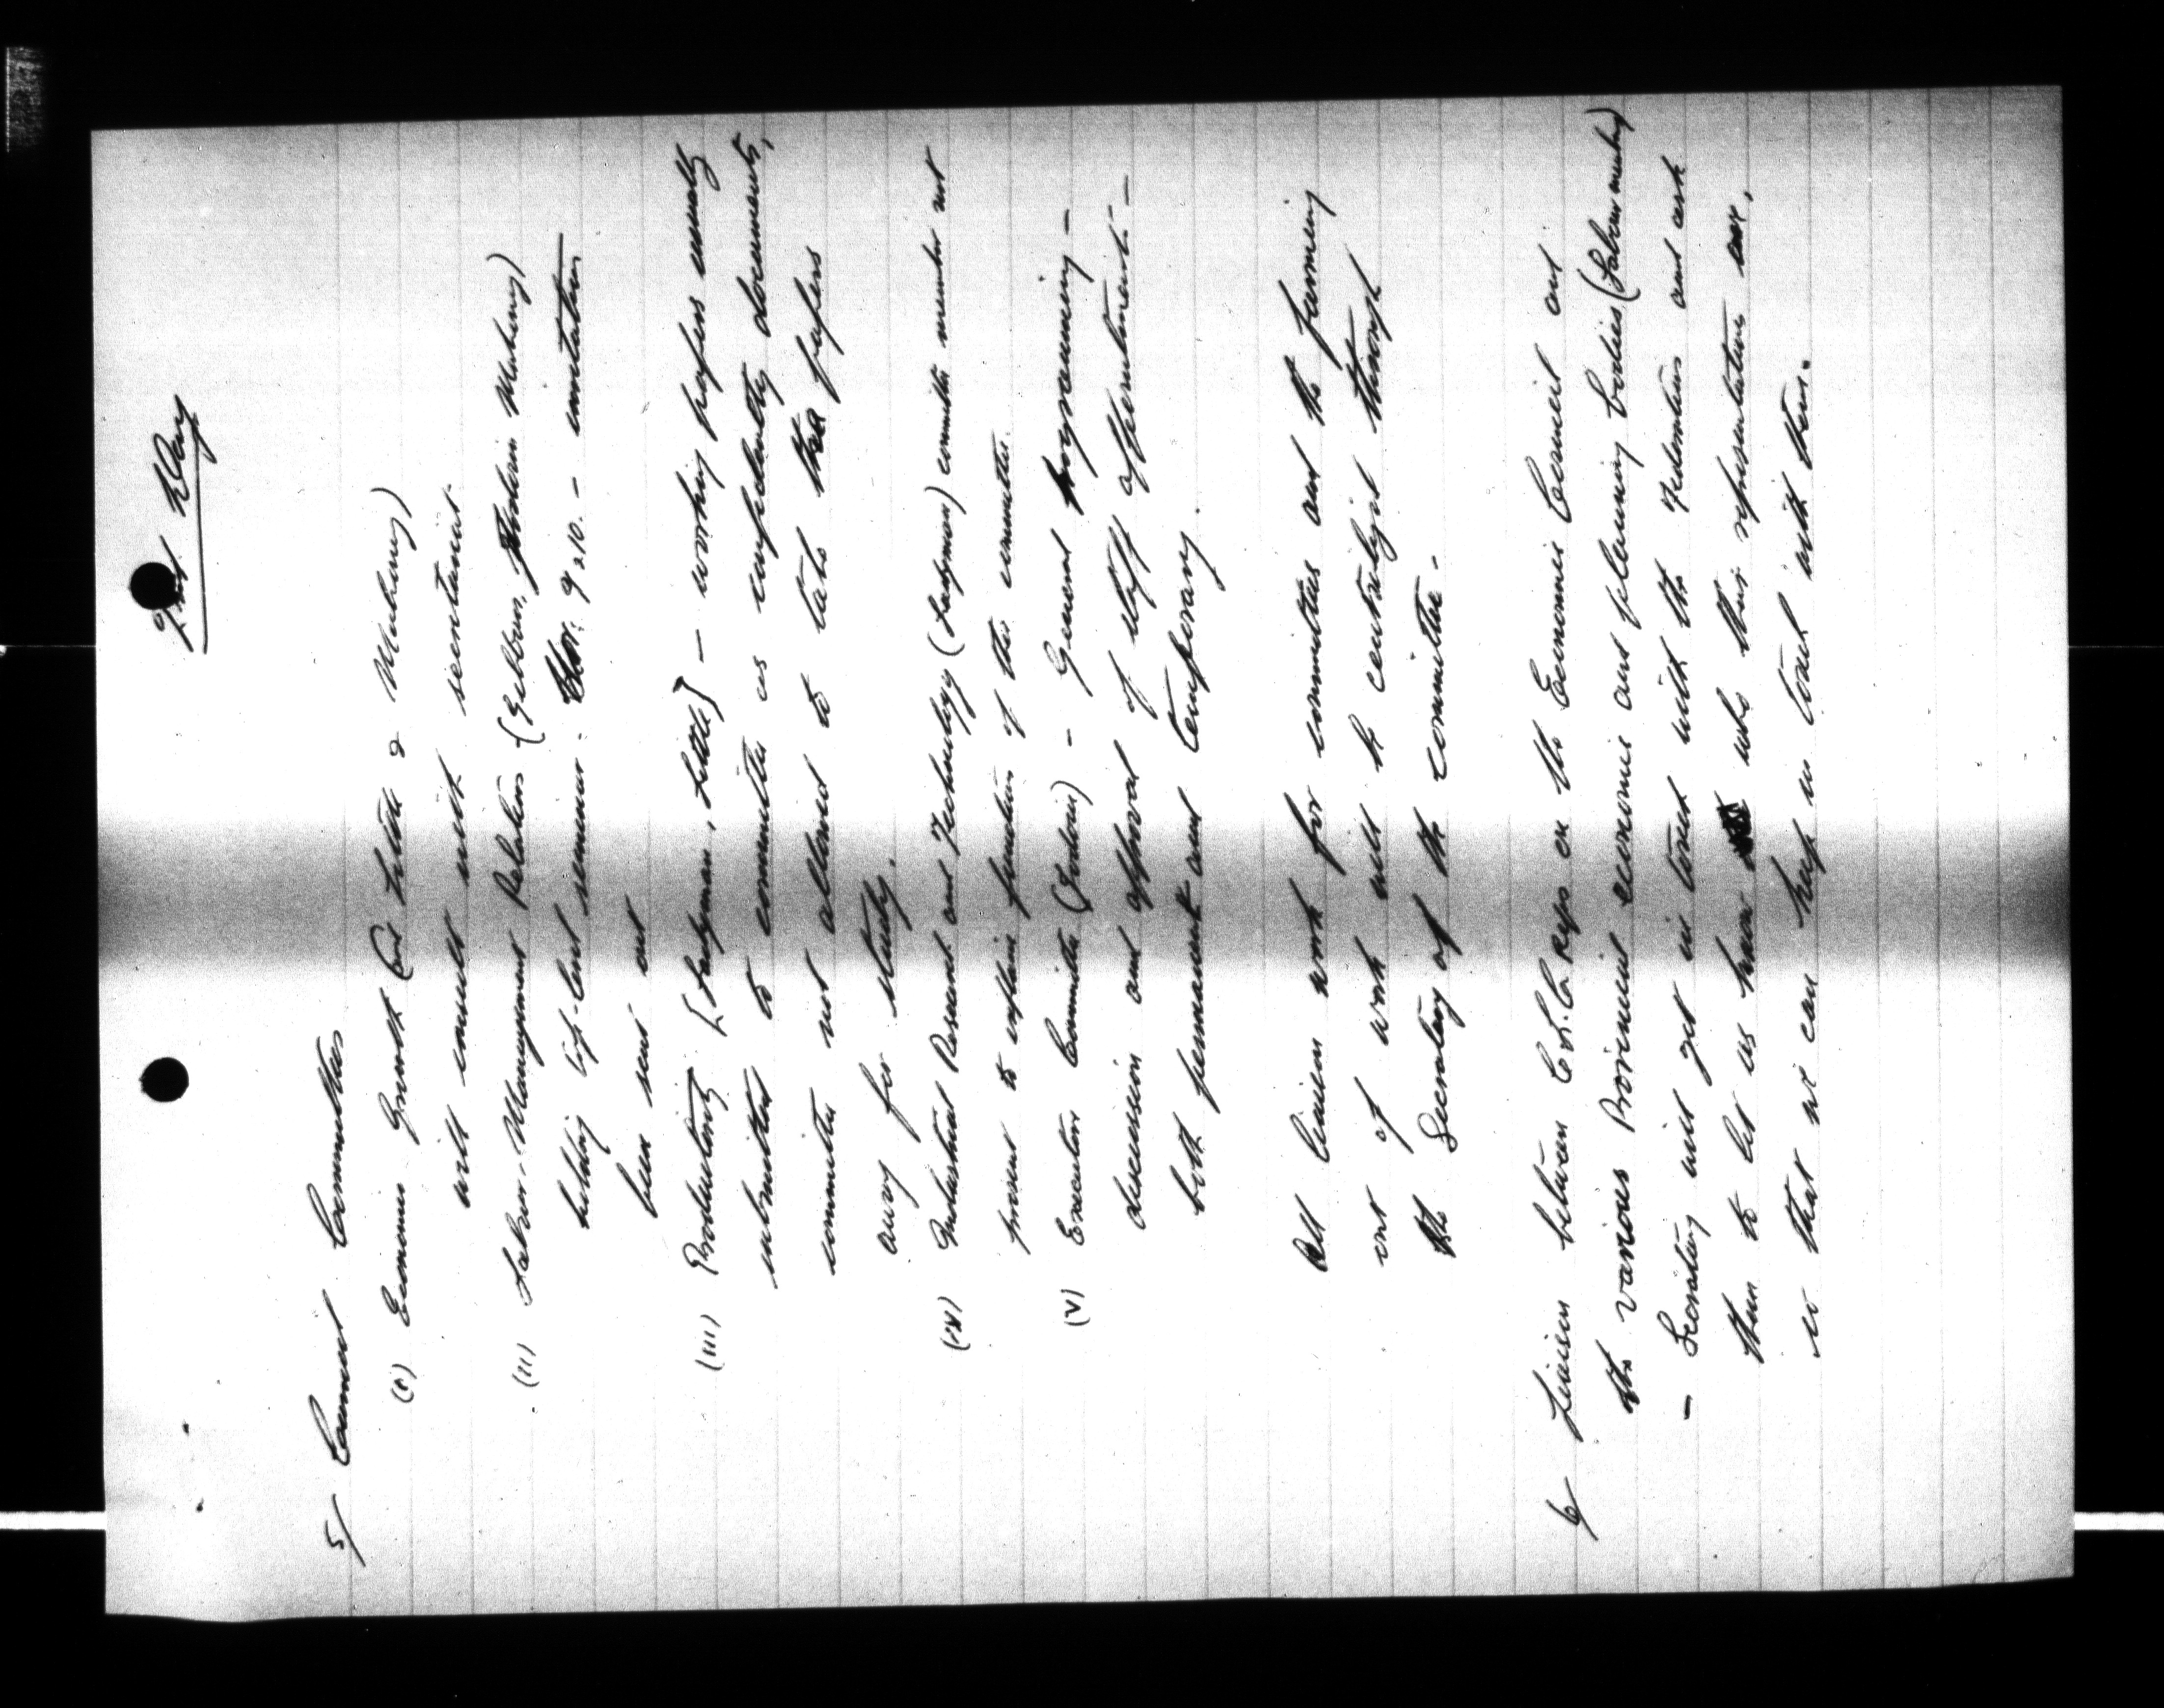 2nd Day
5/ Council Committees
(i) Economic Growth (Cote Little & Mahoney)
will consult with secretariat.
(ii) Labour-Management Relations (Gelbum, Jodoin Mahoney)
holding high-level seminar. Nov. 9 & 10. - invitation
been sent out
(iii) Productivity [Ladyman, Little] - working papers usually
submitted to committee as confidentially documents,
committee not allowed to take papers
away for study.
(iv) Industrial Research and Technology (Ladyman) committee member not
present to explain function of this committee.
(v) Executive Committee (Jodoin) - General programming -
discussion and approval of staff appointments -
both permanent and temporary.
All liaison work for committees and the farming
out of work will be centralized through
the Secretary of the committee.
6/ Liaison between C.L.C. reps on the Economic Council and
the various Provincial economic and planning bodies (Labour members)
- Secretary will get in touch with the Federations and ask
them to let us know who their representatives are,
so that we can keep in touch with them.